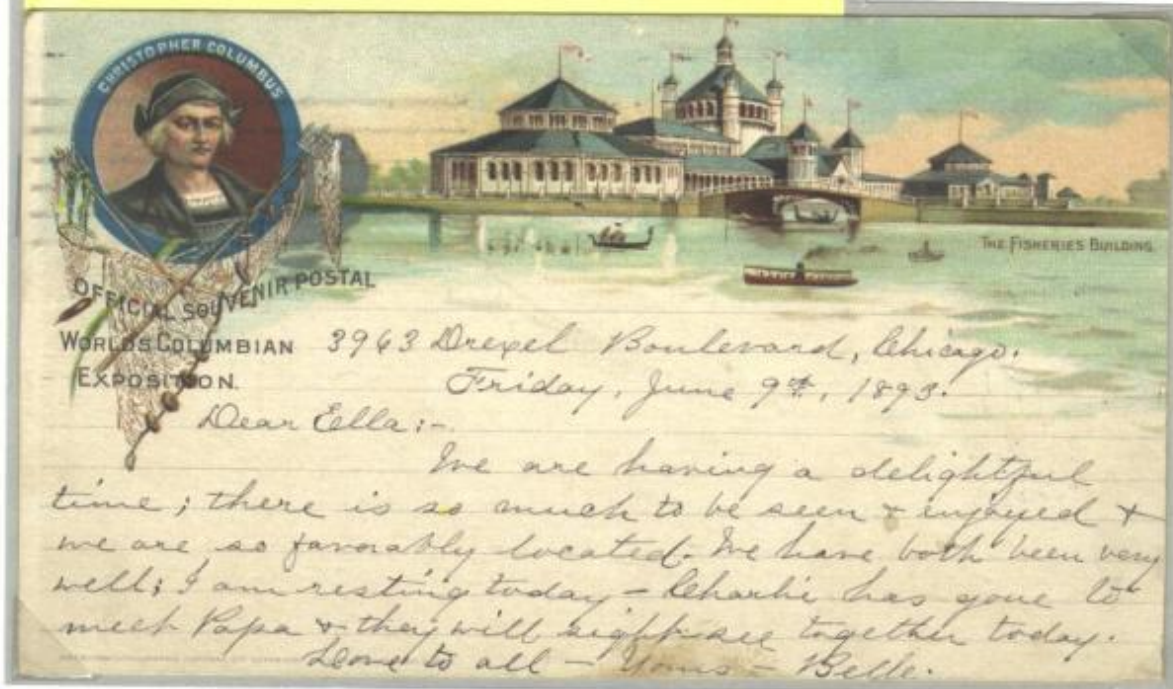 CHRISTOPHER COLUMBUS
THE FISHERIES BUILDING.
OFFICIAL SOUVENIR POSTAL
WORLD'S COLUMBIAN
EXPOSITION.
3963 Drexel Boulevard, Chicago.
Friday, June 9th, 1893.
Dear Ella:-
We are having a delightful
time; there is so much to be seen & enjoyed &
we are so favorably located. We have both been very
well; I am resting today - Charlie has gone to
meet Papa & they will sight-see together today.
Love to all - Yours - Belle.